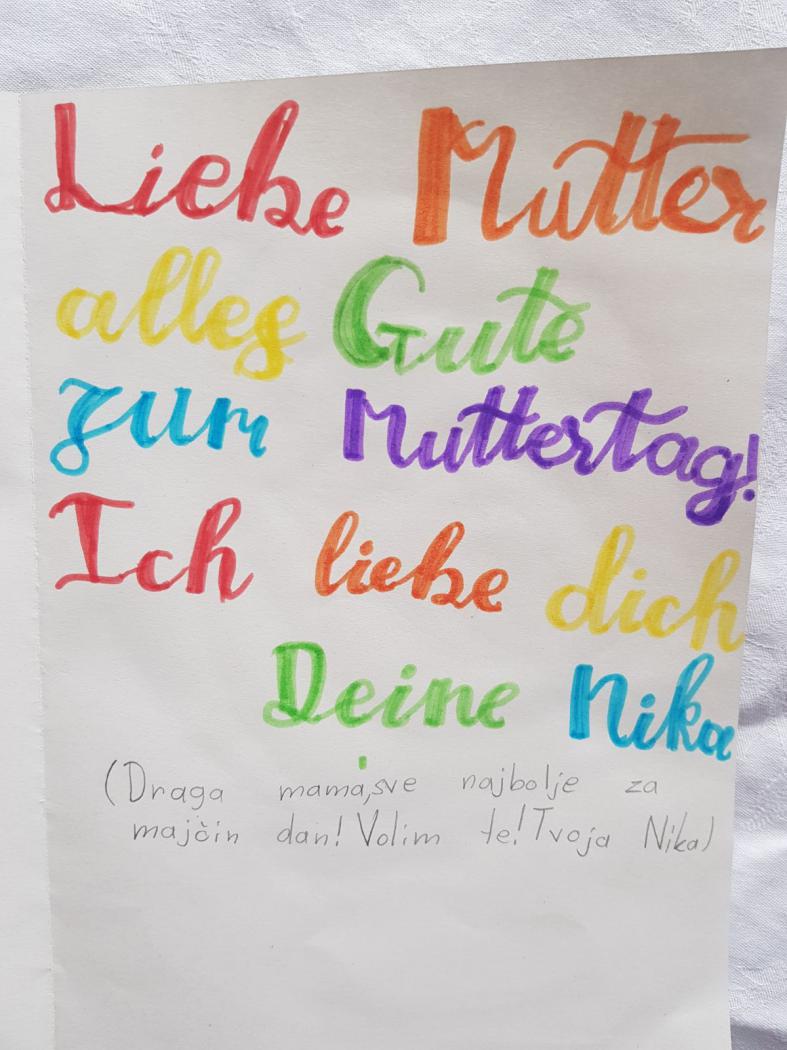 Liebe Mutter
alles Gute
zum Muttertag!
Ich liebe dich
Deine Nika
(Draga mama, sve najbolje za
majčin dan! Volim te! Tvoja Nika)